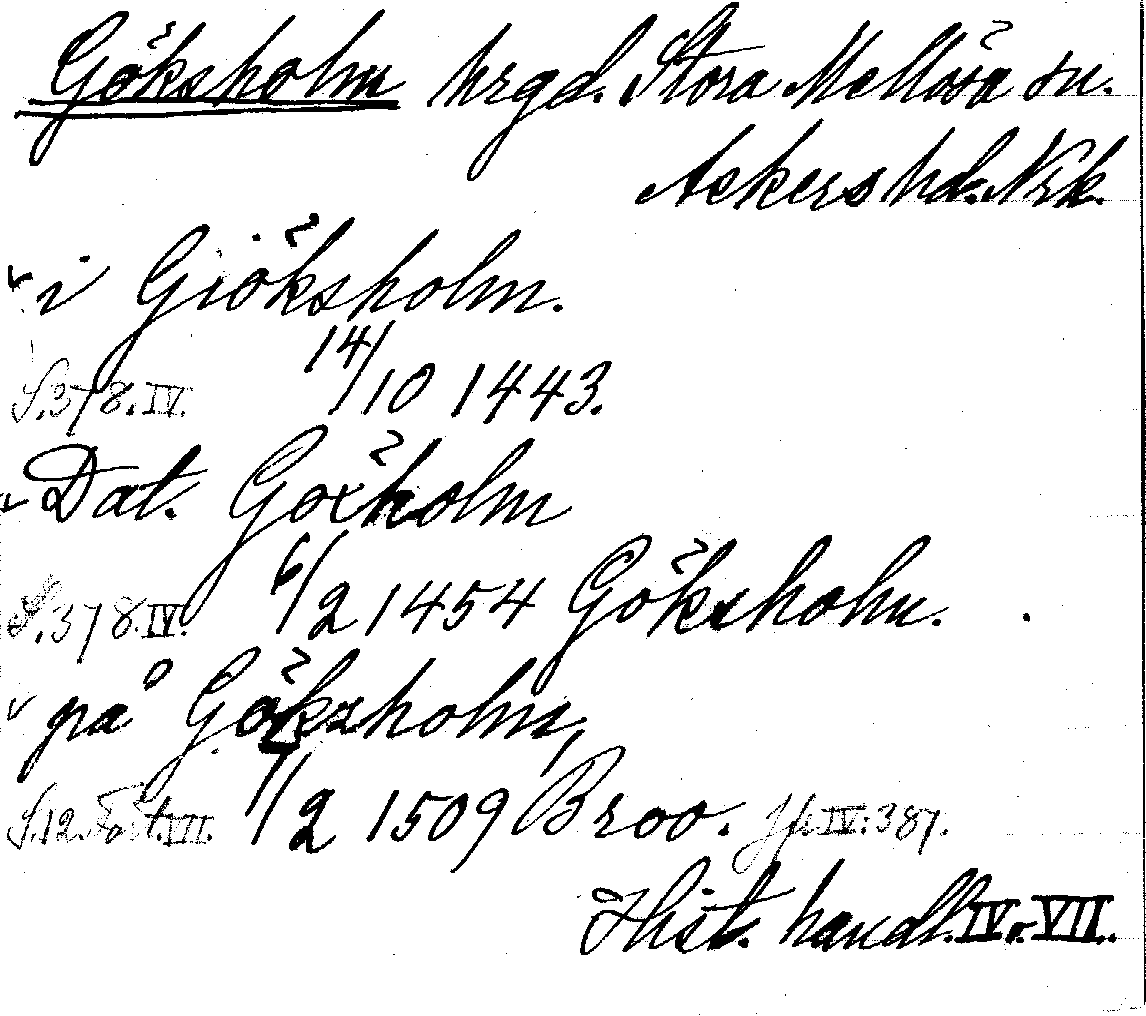 Göksholm hrgd. Stora Mellösa sn.
Askers hd. Nrk.
i Giöksholm.
S. 378. IV. 14/10 1443.
Dat. Goxholm
S. 378. IV. 6/2 1454 Göksholm.
på Gökzholm,
S. 12. Fört. VII. 7/2 1509 Broo. Jfr IV: 387.
Hist. handl. IV. o. VII.